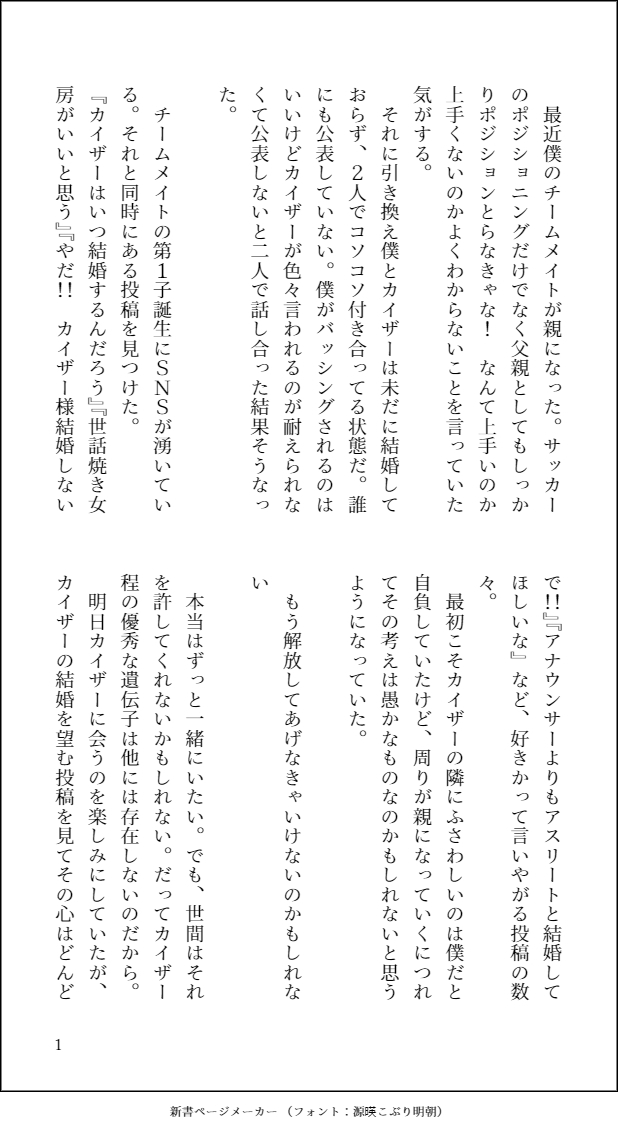 最近僕のチームメイトが親になった。サッカー
のポジショニングだけでなく父親としてもしっか
りポジションとらなきゃな！　なんて上手いのか
上手くないのかよくわからないことを言っていた
気がする。
　それに引き換え僕とカイザーは未だに結婚して
おらず、２人でコソコソ付き合ってる状態だ。誰
にも公表していない。僕がバッシングされるのは
いいけどカイザーが色々言われるのが耐えられな
くて公表しないと二人で話し合った結果そうなっ
た。
　チームメイトの第１子誕生にＳＮＳが湧いてい
る。それと同時にある投稿を見つけた。
『カイザーはいつ結婚するんだろう』『世話焼き女
房がいいと思う』『やだ!!　カイザー様結婚しない
で!!』『アナウンサーよりもアスリートと結婚して
ほしいな』など、好きかって言いやがる投稿の数
々。
　最初こそカイザーの隣にふさわしいのは僕だと
自負していたけど、周りが親になっていくにつれ
てその考えは愚かなものなのかもしれないと思う
ようになっていた。
　もう解放してあげなきゃいけないのかもしれな
い
　本当はずっと一緒にいたい。でも、世間はそれ
を許してくれないかもしれない。だってカイザー
程の優秀な遺伝子は他には存在しないのだから。
　明日カイザーに会うのを楽しみにしていたが、
カイザーの結婚を望む投稿を見てその心はどんど
1
新書ページメーカー（フォント：源暎こぶり明朝）